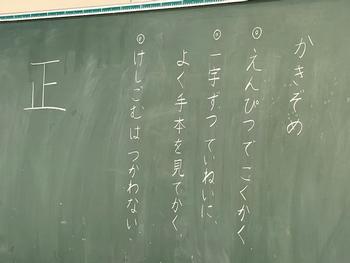 かきぞめ
◎えんぴつでこくかく
◎一字ずつていねいに、
よく手本を見てかく
◎けしごむはつかわない.
正